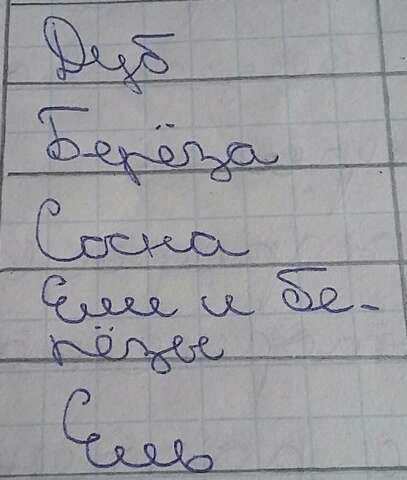 Дуб
Берёза
Сосна
Ели и бе-
рёзы
Ель